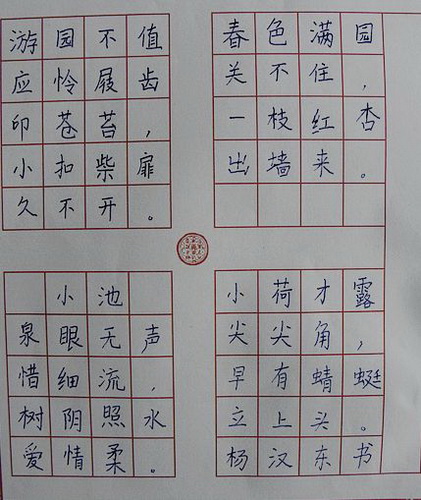 游园不值
应怜屐齿
印苍苔，
小扣柴扉
久不开。
春色满园
关不住，
一枝红杏
出墙来。
小池
泉眼无声
惜细流，
树阴照水
爱情柔。
小荷才露
尖尖角，
早有蜻蜓
立上头。
杨汉东书